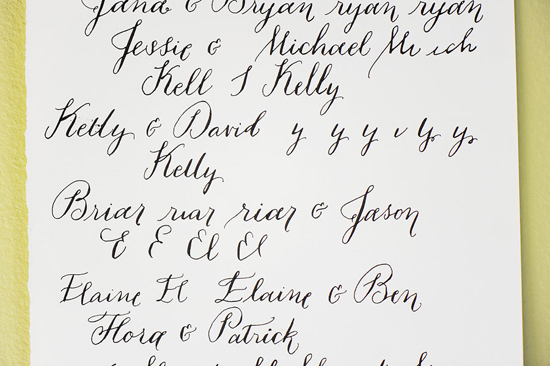 Jana & Bryan ryan ryan
Jessie & Michael M ich
Kell S Kelly
Kelly & David y y y v y y
Kelly
Briar riar riar & Jason
E E El El
Elaine El Elaine & Ben
Flora & Patrick